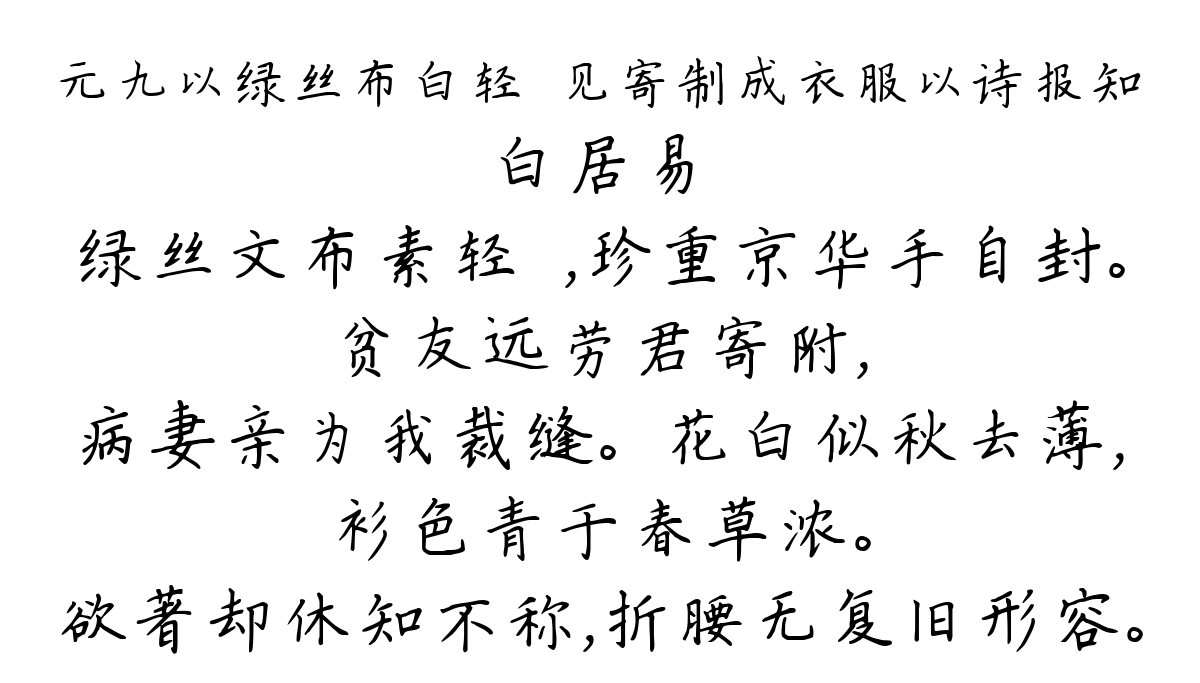 元九以绿丝布白轻 见寄制成衣服以诗报知
白居易
绿丝文布素轻 ,珍重京华手自封。
贫友远劳君寄附,
病妻亲为我裁缝。花白似秋去薄,
衫色青于春草浓。
欲著却休知不称,折腰无复旧形容。